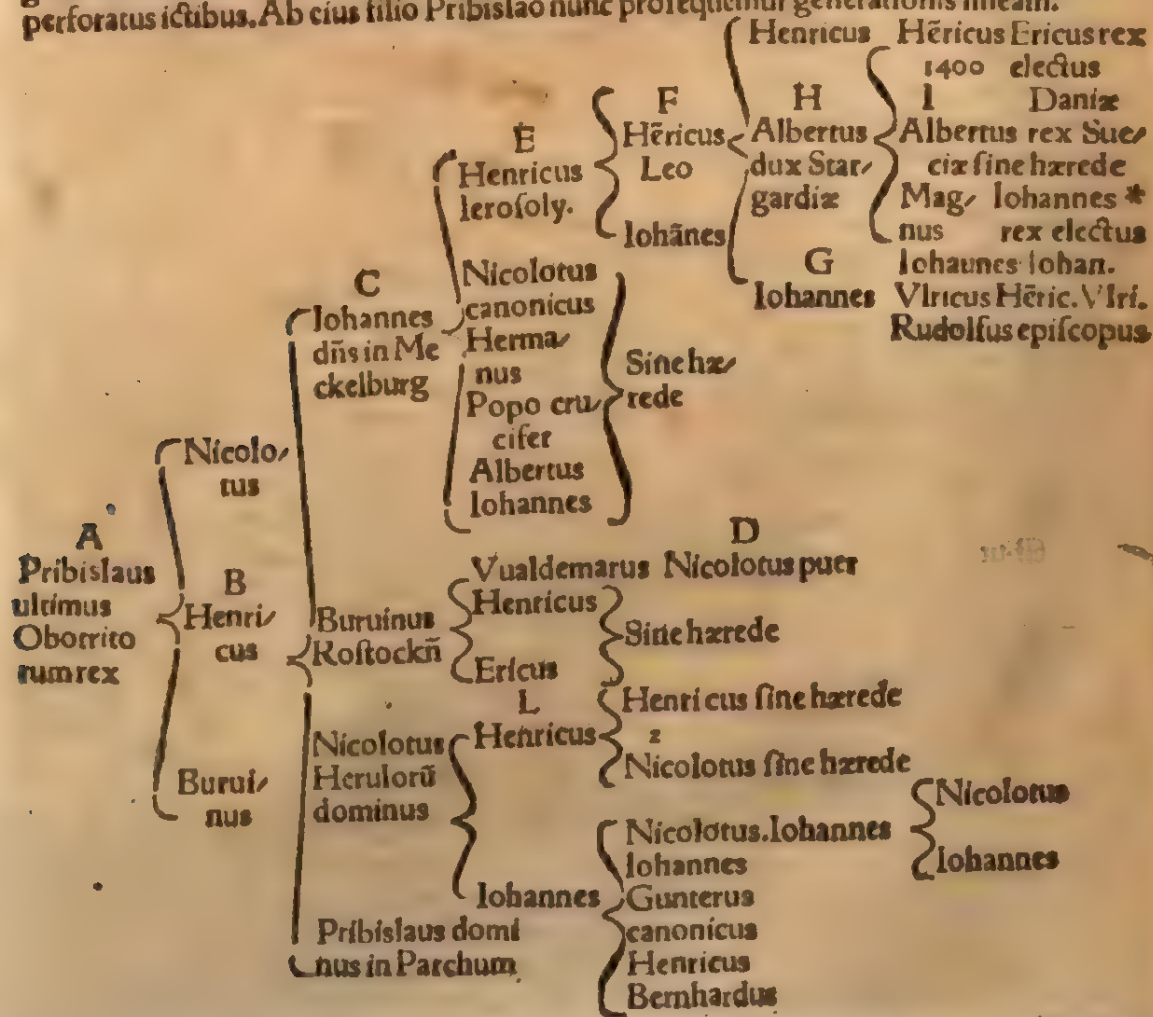 perforatus ictibus. Ab eius filio Pribislao nunc prosequemur generationis lineam.
A
Pribislaus
ultimus
Obotrito
rum rex
Nicolo⸗
tus
B
Henri⸗
cus
Burui⸗
nus
C
Iohannes
dñs in Me
ckelburg
Buruinus
Rostockñ
Nicolotus
Herulorũ
dominus
Pribislaus domi
nus in Parchum
E
Henricus
Ierosoly.
Nicolotus
canonicus
Herma⸗
nus
Popo cru⸗
cifer
Albertus
Iohannes
Sine hæ⸗
rede
F
Hẽricus
Leo
Iohãnes
Henricus
H
Albertus
dux Star⸗
gardiæ
G
Iohannes
Hẽricus Ericus rex
1400 electus
I Daniæ
Albertus rex Sue⸗
ciæ sine hærede
Mag⸗ Iohannes *
nus rex electus
Iohannes Iohan.
Vlricus Hẽric. Vlri.
Rudolfus episcopus
Vualdemarus
D
Nicolotus puer
Henricus
Ericus
Sine hærede
L
Henricus
Henricus sine hærede
2
Nicolotus sine hærede
Iohannes
Nicolotus. Iohannes
Iohannes
Gunterus
canonicus
Henricus
Bernhardus
Nicolotus
Iohannes